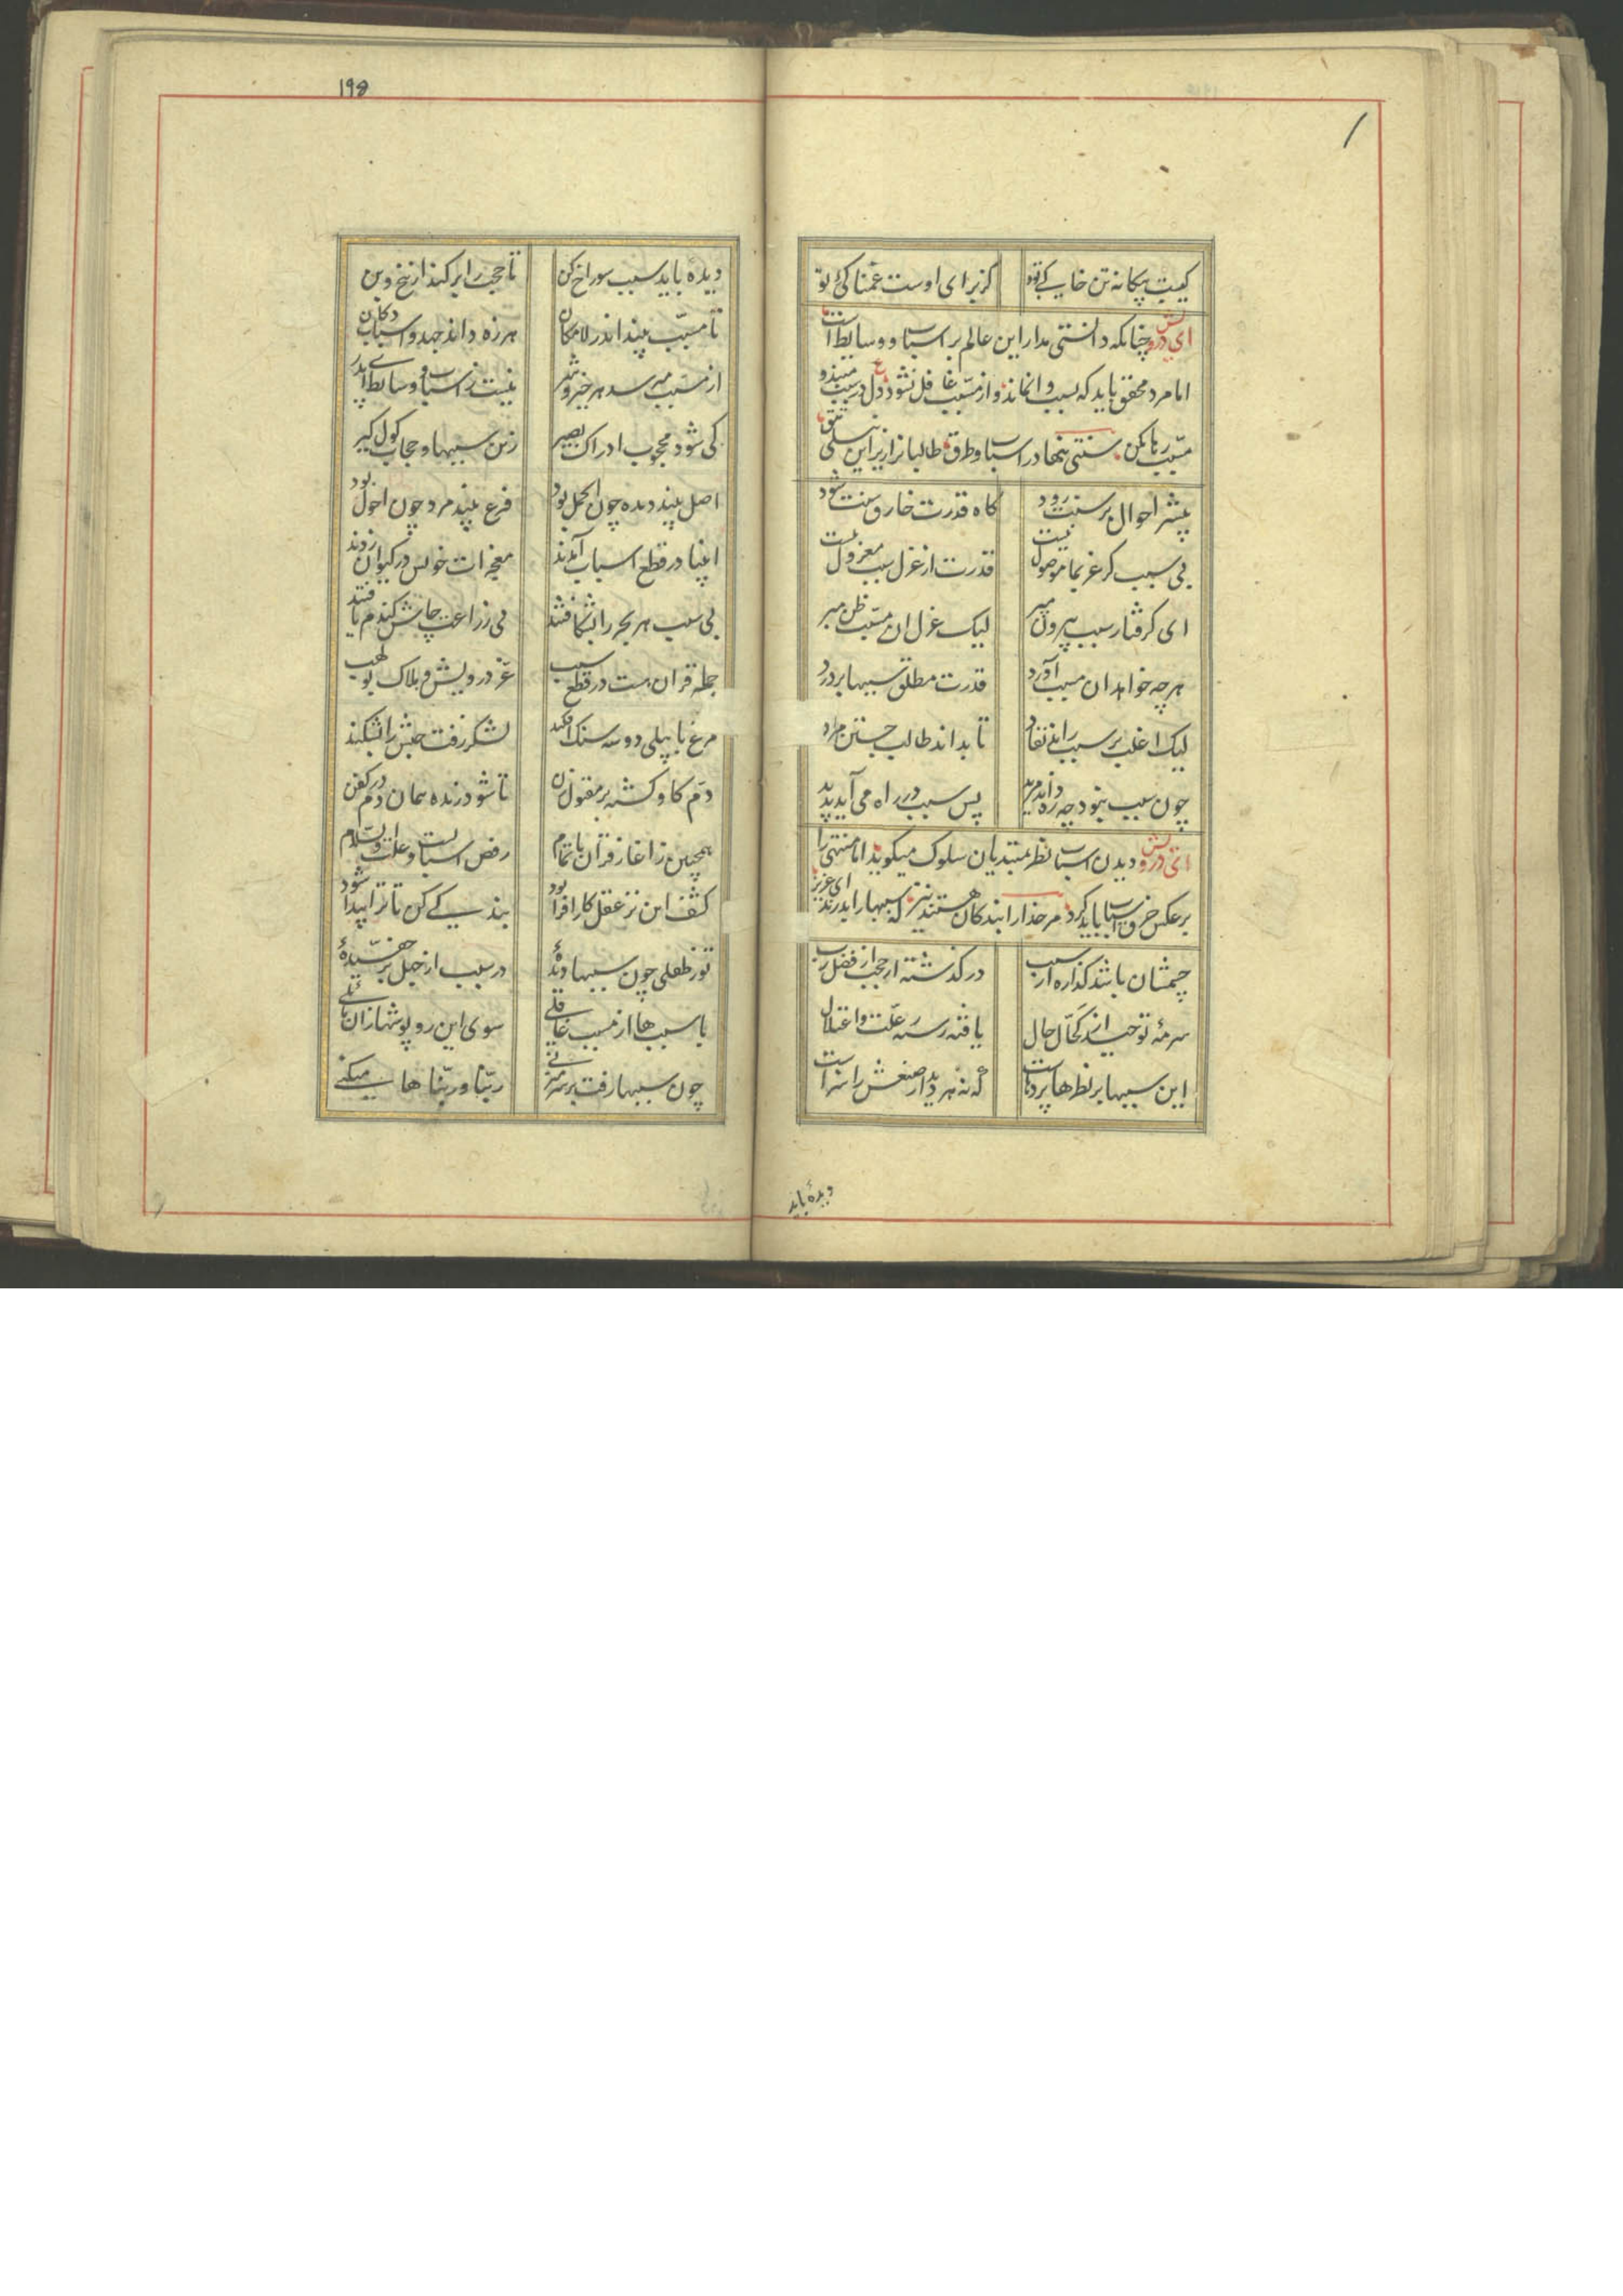 کیست بیگانه تن خاکی تو کز برای اوست غمناکی تو
ای درویش چنانکه دانستی مدار این عالم بر اسباب و وسایط است
اما مرد محقق باید که بسبب وانماند و از مسبب غافل نشود ع دل در سبب مبند و
مسبب رها مکن سنتی بنهاد در اسباب و طرق طالبان را زیر این نیلی تتق
بیشتر احوال بر سنت رود گاه قدرت خارق سنت شود
بی سبب گر عز بما موصول نیست قدرت از عزل سبب معزول نیست
ای گرفتار سبب بیرون مپر لیک عزل آن مسبب ظن مبر
هرچه خواهد آن مسبب آورد قدرت مطلق سببها بر درد
لیک اغلب بر سبب راند نفاد تا بداند طالب جستن مراد
چون سبب نبود چه ره داند مرید پس سبب در راه می آید پدید
ای درویش دیدن اسباب نظر بمبتدیان سلوک میگوید اما منتهی را
برعکس خرق اسباب باید کرد مر خدا را بندکان هستند نیز که سببها را بدرند ای عزیز
چشمشان باشد گذاره از سبب در گذشته از حجب از فضل رب
سرمه توحید از کحّال حال یافته رسته ز علّت و اعتلال
این سببها بر نظرها پردهاست که نه هر دیدار صنعش را سزاست
دیدهٔ باید
۱۹۵
دیدهٔ باید سبب سوراخ کن تا حجب را بر کند از بیخ و بن
تا مسبّب بیند اندر لامکان هرزه داند جهد و اسباب دکان
از مسبب میرسد هر خیر و شر نیست ز اسباب و وسایط ای پدر
کی شود محجوب ادراک بصیر زین سببها و حجاب کول گیر
اصل بیند دیده چون اکمل بود فرع بیند مرد چون احول بود
انبیا در قطع اسباب آمدند معجزات خویش در کیوان زدند
بی سبب هر بحر را بشکافتند بی زراعت چاش گندم یافتند
جمله قرآن هست در قطع سبب عز درویش و هلاک بولهب
مرغ بابیلی دو سه سنگ افکند لشکر زفت حبش را بشکند
دم گاو کشته بر مقتول زن تا شود زنده همان دم در کفن
همچنین ز آغاز قرآن تا تمام رفض اسبابست و علت والسّلام
کشف این نز عقل کارافزا بود بندگی کن تا ترا پیدا شود
تو ز طفلی چون سببها دیدهٔ در سبب از جهل بر چفسیدهٔ
با سببها از مسبب غافلی سوی این روپوشها زان مایلی
چون سببها رفت بر سر میزنی ربّنا و ربّناها میکنی